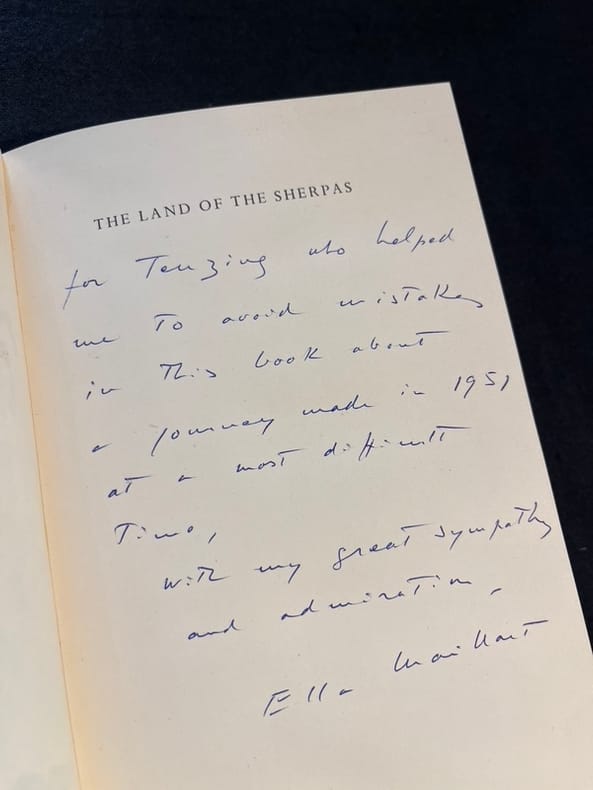 THE LAND OF THE SHERPAS
for Tenzing who helped
me to avoid mistakes
in this book about
a journey made in 1951
at a most difficult
Time,
with my great sympathy
and admiration,
Ella Maillart